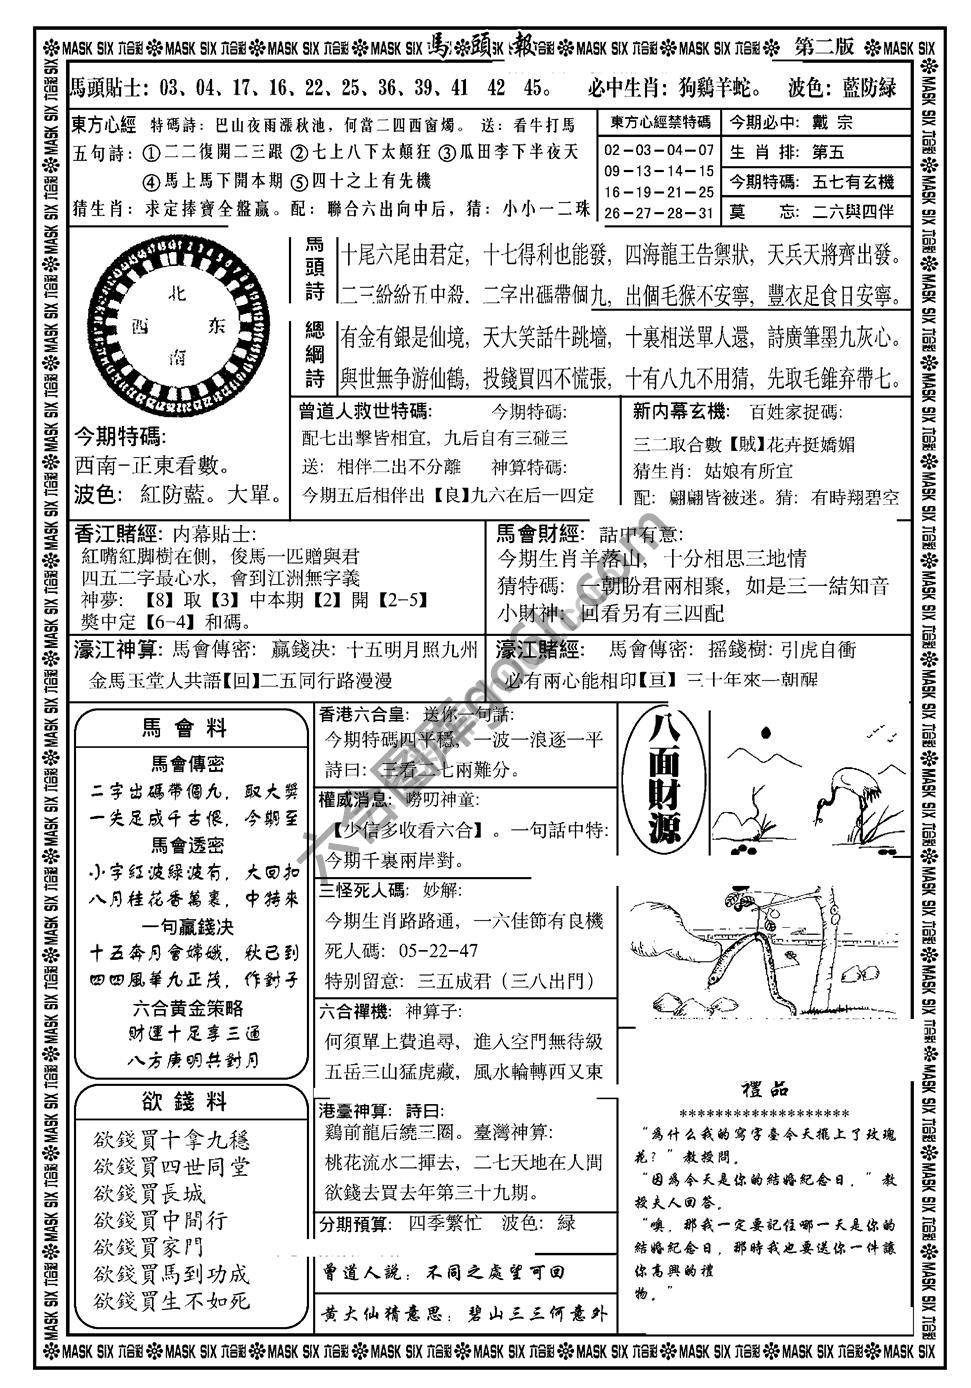 MASK SIX 六合彩 MASK SIX 六合彩 MASK SIX 六合彩 MASK SIX 馬頭報 六合彩 MASK SIX 第二版 MASK SIX
馬頭貼士：03、04、17、16、22、25、36、39、41 42 45。 必中生肖：狗鷄羊蛇。 波色：藍防緑
東方心經 特碼詩：巴山夜雨漲秋池，何當二四西窗燭。 送：看牛打馬
五句詩：①二二復開二三跟 ②七上八下太顛狂 ③瓜田李下半夜天
④馬上馬下開本期 ⑤四十之上有先機
猜生肖：求定捧寶全盤贏。配：聯合六出向中后，猜：小小一二珠
東方心經禁特碼
02-03-04-07
09-13-14-15
16-19-21-25
26-27-28-31
今期必中：戴宗
生肖排：第五
今期特碼：五七有玄機
莫忘：二六與四伴
北
西 东
南
今期特碼:
西南-正東看數。
波色：紅防藍。大單。
馬頭詩
十尾六尾由君定，十七得利也能發，四海龍王告禦狀，天兵天將齊出發。
二三紛紛五中殺．二字出碼帶個九，出個毛猴不安寧，豐衣足食日安寧。
總綱詩
有金有銀是仙境，天大笑話牛跳墙，十裏相送單人還，詩廣筆墨九灰心。
與世無争游仙鶴，投錢買四不慌張，十有八九不用猜，先取毛錐弃帶七。
曾道人救世特碼: 今期特碼:
配七出擊皆相宜，九后自有三碰三
送：相伴二出不分離 神算特碼:
今期五后相伴出【良】九六在后一四定
新内幕玄機: 百姓家捉碼:
三二取合數【贼】花卉挺嬌媚
猜生肖：姑娘有所宜
配：翩翩皆被迷。猜：有時翔碧空
香江賭經: 内幕貼士:
紅嘴紅脚樹在側，俊馬一匹贈與君
四五二字最心水，會到江洲無字義
神夢：【8】取【3】中本期【2】開【2-5】
獎中定【6-4】和碼。
馬會財經: 話中有意:
今期生肖羊落山，十分相思三地情
猜特碼：一朝盼君兩相聚，如是三一結知音
小財神：回看另有三四配
濠江神算: 馬會傳密: 贏錢决: 十五明月照九州
金馬玉堂人共語【回】二五同行路漫漫
濠江賭經: 馬會傳密: 摇錢樹: 引虎自衝
必有兩心能相印【亘】三十年來一朝醒
馬會料
馬會傳密
二字出碼帶個九，取大獎
一失足成千古恨，今期至
馬會透密
小字紅波緑波有，大回扣
八月桂花香萬裏，中特來
一句贏錢决
十五奔月會嫦娥，秋已到
四四風華九正茂，作對子
六合黄金策略
財運十足享三通
八方庚明共對月
欲錢料
欲錢買十拿九穩
欲錢買四世同堂
欲錢買長城
欲錢買中間行
欲錢買家門
欲錢買馬到功成
欲錢買生不如死
香港六合皇: 送你一句話:
今期特碼四平穩，一波一浪逐一平
詩曰：三看二七兩難分。
權威消息: 嘮叨神童:
【少信多收看六合】。一句話中特:
今期千裏兩岸對。
三怪死人碼: 妙解:
今期生肖路路通，一六佳節有良機
死人碼：05-22-47
特别留意：三五成君（三八出門）
六合禪機: 神算子:
何須單上費追尋，進入空門無待級
五岳三山猛虎藏，風水輪轉西又東
港臺神算: 詩曰:
鷄前龍后繞三圈。臺灣神算:
桃花流水二揮去，二七天地在人間
欲錢去買去年第三十九期。
分期預算: 四季繁忙 波色: 緑
曾道人説：不同之處望可回
黄大仙猜意思：碧山三三何意外
八面財源
禮品
*******************
“為什么我的寫字臺今天擺上了玫瑰
花？”教授問。
“因為今天是你的結婚紀念日，”教
授夫人回答。
“噢，那我一定要記住哪一天是你的
結婚紀念日，那時我也要送你一件讓
你高興的禮
物。”
MASK SIX 六合彩 MASK SIX 六合彩 MASK SIX 六合彩 MASK SIX 六合彩 MASK SIX 六合彩 MASK SIX 六合彩 MASK SIX 六合彩 MASK SIX 六合彩 MASK SIX